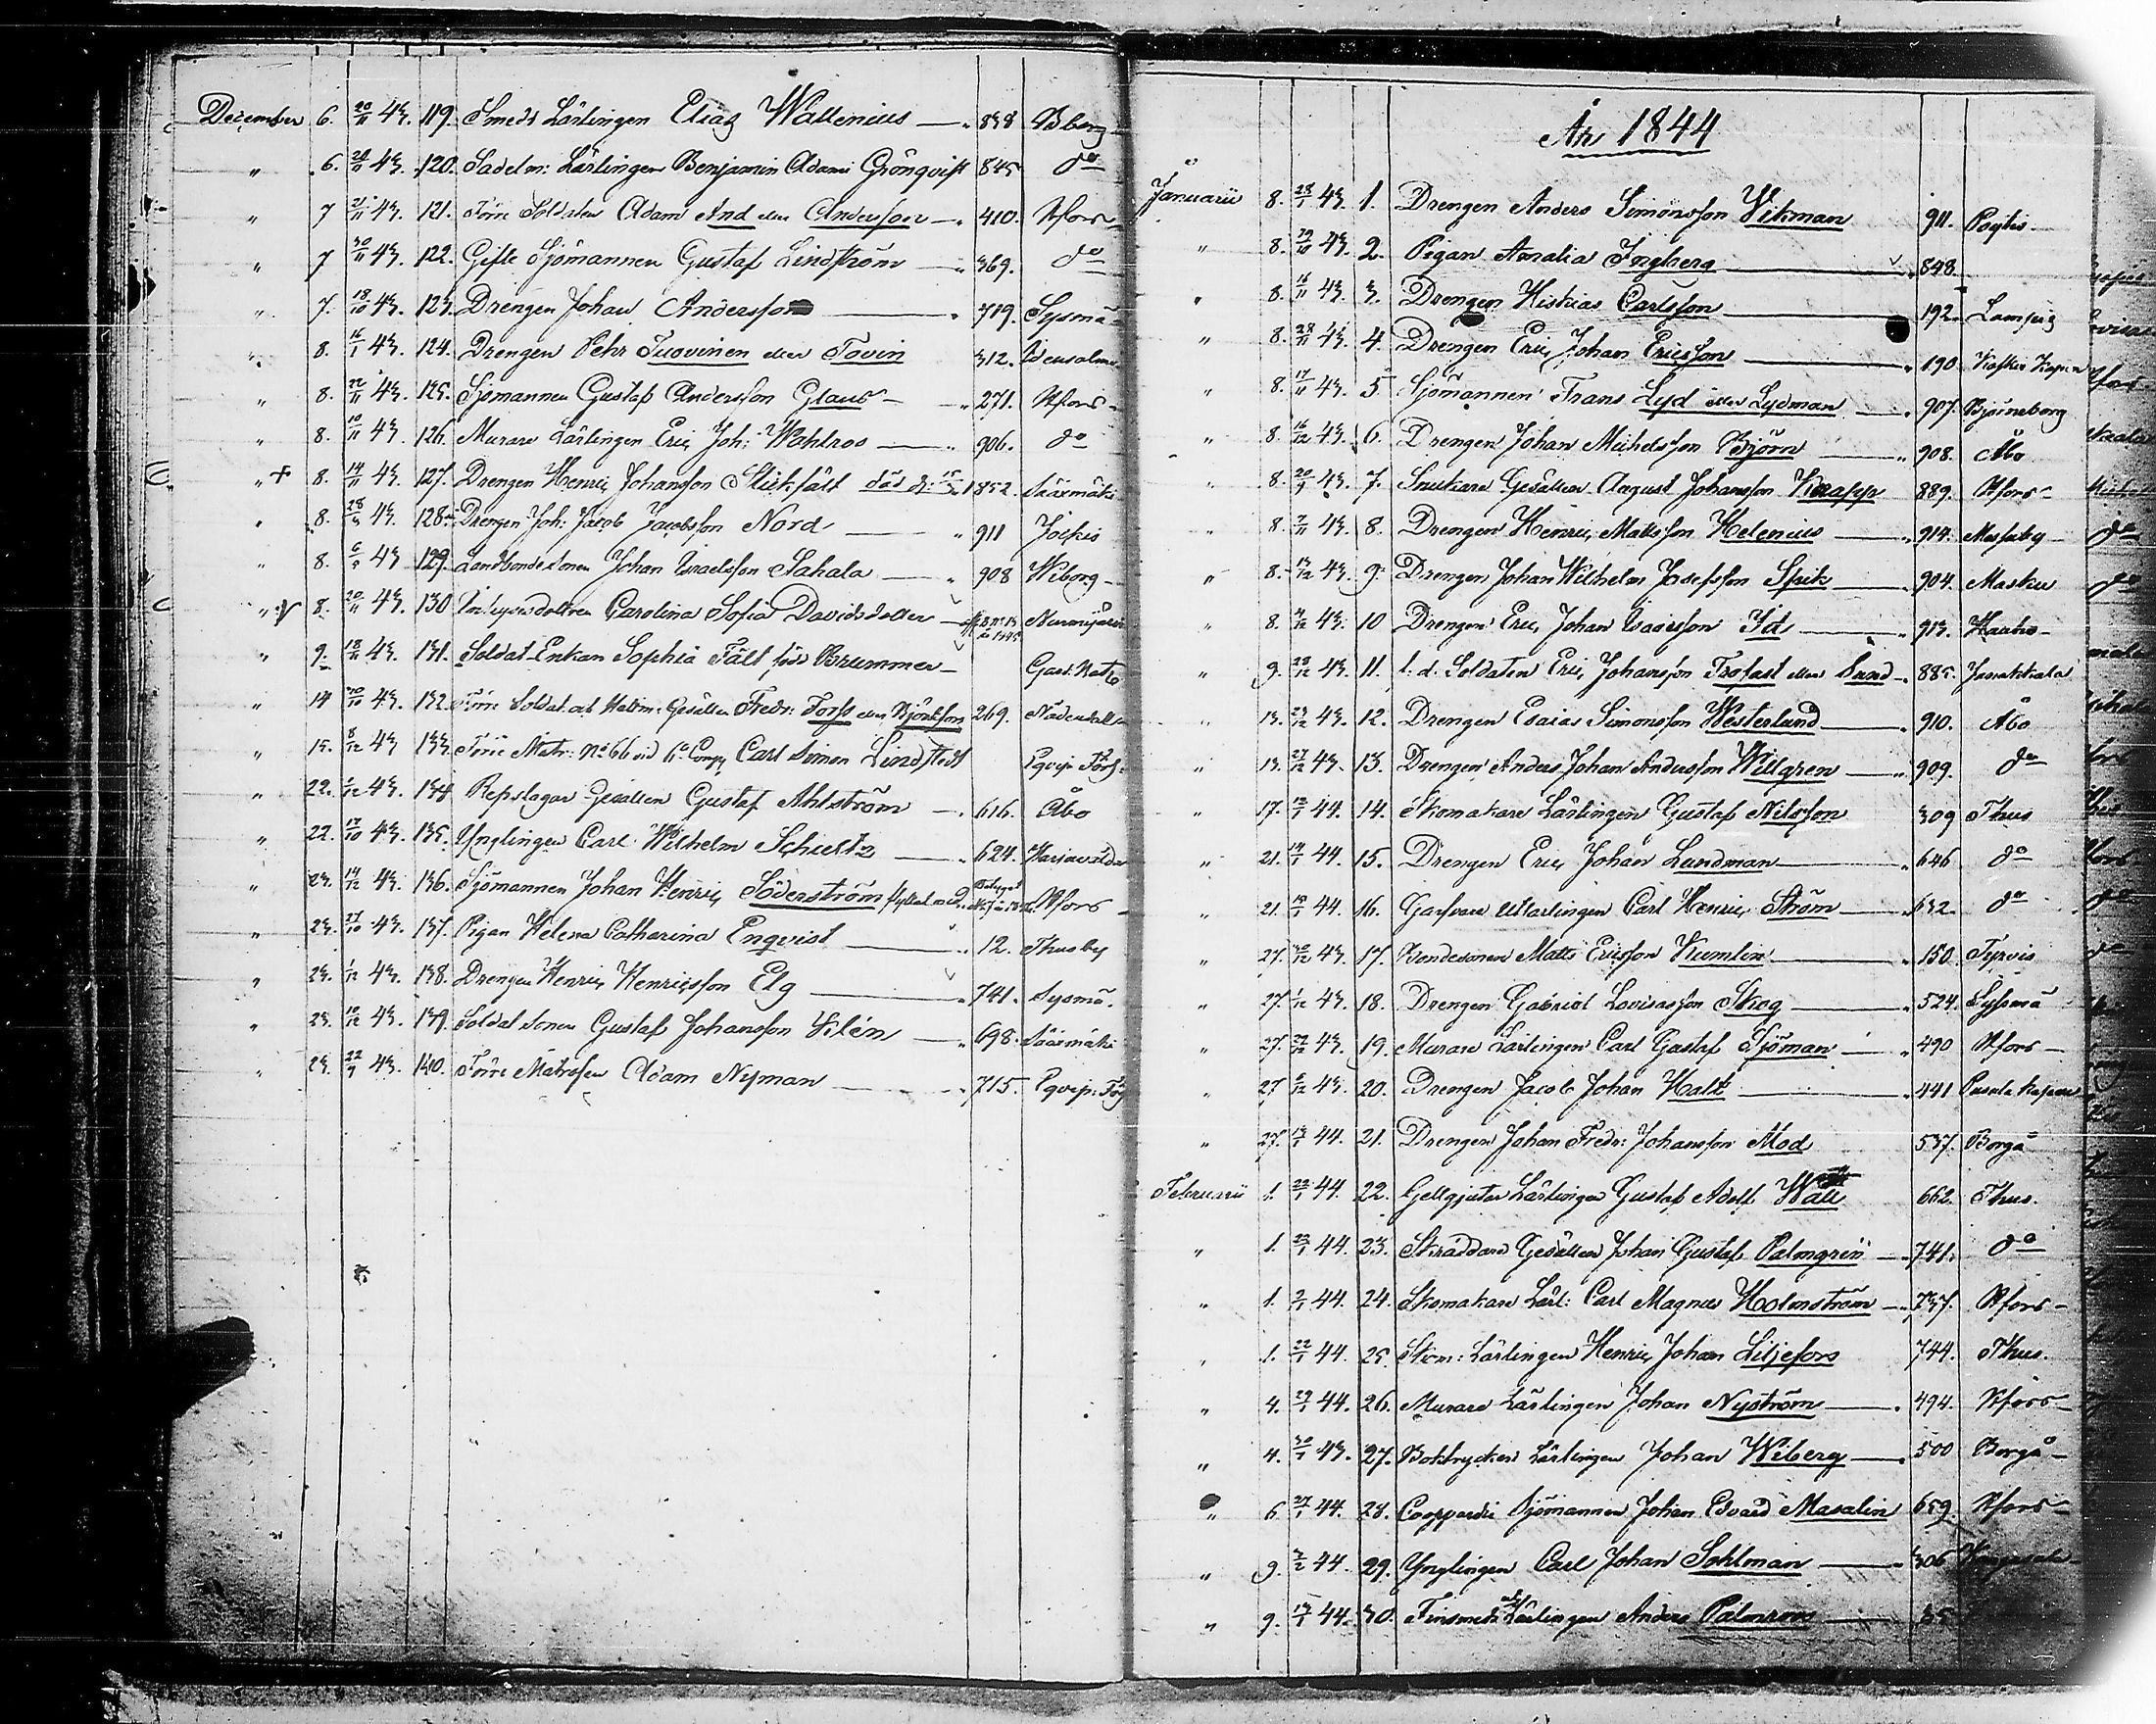 December 6. 20/11 43. 119. Smeds Lärlingen Elias Wallenius — 838 Bborg
" 6. 43. 120. Sadelm: Lärlingen Benjamin Adam Grönqvist 845 do
" 7 21/11 43. 121. Förre Soldaten Adam And eller Andersson — 410. Hfors
" 7 30/11 43. 122. Gifte Sjömannen Gustaf Lindström — 369. do
" 7. 18/10 43. 123. Drengen Johan Andersson — 719. Sysmä
" 8. 16/1 43. 124. Drengen Pehr Tuovinen eller Tovin 312. Idensalmi
" 8. 22/11 43. 125. Sjömannen Gustaf Andersson Glans — 271. Hfors
" 8. 10/11 43. 126. Murare Lärlingen Eric Joh: Wahlroos — 906. do
" + 8. 14/11 43. 127. Drengen Henric Johansson Stickfält död d: 852. Sääxmäki
" 8. 28/3 43. 128. Drengen Joh: Jacob Jacobsson Nord — 911 Jockis
" 8. 43 129. Landbondesonen Johan Israelsson Sahala — 908 Wiborg
" 8. 20/11 43. 130 Inhysesdottren Carolina Sofia Davidsdotter — Nurmijärvi
" 9. 18/11 43. 131. Soldat Enkan Sophia Fält född Brummer — Gard. Bat.
" 14 30/10 43. 132. Förre Soldat och Hattm: Gesällen Fredr: Forss eller Björkfors 269. Nådendahl
" 15. 8/12 43 133. Förre Matr: No 66 vid 1a Comp Carl Simon Lindstedt Eqvip:
" 22. 1/12 43. 134 Repslagar Gesällen Gustaf Ahlström — 616. Åbo
" 22. 17/10 43. 135. Ynglingen Carl Wilhelm Schultz — 624. Harjavalda
" 23. 14/12 43. 136. Sjömannen Johan Henric Söderström Hfors
" 23. 27/10 43. 137. Pigan Helena Catharina Enqvist — 12. Thusby
" 23. 1/12 43. 138. Drengen Henric Henricsson Elg — 741. Sysmä.
" 23. 10/12 43. 139. Soldat sonen Gustaf Johansson Vilén — 698. Sääxmäki
" 23. 22/9 43. 140. Förre Matrosen Adam Nyman — 715. Eqvip:
År 1844
Januarii 8. 28/1 43. 1. Drengen Anders Simonsson Vikman 911. Pöytis
" 8. 19/10 43. 2. Pigan Amalia Ingberg — 848.
" 8. 16/11 43. 3. Drengen Hiskias Carlsson — 192. Lampis
" 8. 28/11 43. 4. Drengen Eric Johan Ericsson — 190.
" 8. 17/11 43. 5 Sjömannen Frans Lyd eller Lydman — 907. Björneborg
" 8. 16/12 43. 6. Drengen Johan Michelsson Björn — 908. Åbo
" 8. 20/9 43. 7. Snickare Gesällen August Johansson Knapp 889. Hfors
" 8. 7/11 43. 8. Drengen Henric Mattsson Helenius — 914. Messuby
" 8. 43. 9. Drengen Johan Wilhelm Josefsson Spik — 904. Masku
" 8. 43. 10 Drengen Eric Johan Isacsson Id — 913. Hauho
" 9. 43. 11. f. d. Soldaten Eric Johansson Trofast eller Sand — 885. Janakkala
" 13. 23/12 43. 12. Drengen Esaias Simonsson Westerlund — 910. Åbo
" 13. 27/12 43. 13. Drengen Anders Johan Andersson Willgren — 909. do
" 17. 44. 14. Skomakare Lärlingen Gustaf Nilsson 309 Thus
" 21. 44. 15. Drengen Eric Johan Lundman — 646 do
" 21. 44. 16. Garfvare Lärlingen Carl Henric Ström — 632. do
" 27. 43. 17. Bondesonen Matts Ericsson Kumlin — 150. Tyrvis
" 27. 1/12 43. 18. Drengen Gabriel Lovisasson Skog — 524. Syssmä
" 27. 43. 19. Murare Lärlingen Carl Gustaf Sjöman — 490 Hfors
" 27 43. 20. Drengen Jacob Johan Halt — 441 Pusula Kapell
" 27. 44. 21. Drengen Johan Fredr: Johansson Mod 537. Borgå
Februarii 1. 44. 22. Gellgjutar Lärlingen Gustaf Adolf Wall 662. Thus.
" 1. 44. 23. Skräddare Gesällen Johan Gustaf Palmgrén — 741. do
" 1. 44. 24. Skomakare Lärl: Carl Magnus Holmström — 737. Hfors
" 1. 22/1 44. 25 Skom: Lärlingen Henric Johan Liljefors 744. Thus.
" 4. 29/1 44. 26. Murare Lärlingen Johan Nyström — 494. Hfors
" 4. 43. 27. Boktryckeri Lärlingen Johan Wiberg — 500 Borgå
" 6 27/1 44. 28. Coopvardie Sjömannen Johan Edvard Masalin 659. Hfors
" 9. 44. 29. Ynglingen Carl Johan Sohlman — 306 Kangasala
" 9. 44. 30. Finsmeds Lärlingen Anders Palmroos